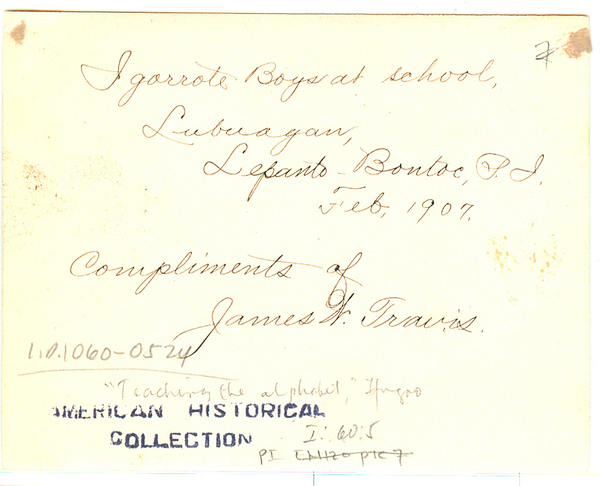 7
Igorrote Boys at school,
Lubuagan,
Lepanto-Bontoc, P.I.
Feb, 1907.
Compliments of
James W. Travis.
1.D.1060-0524
"Teaching the alphabet," Ifugao
AMERICAN HISTORICAL
COLLECTION
I: 60:5
PI